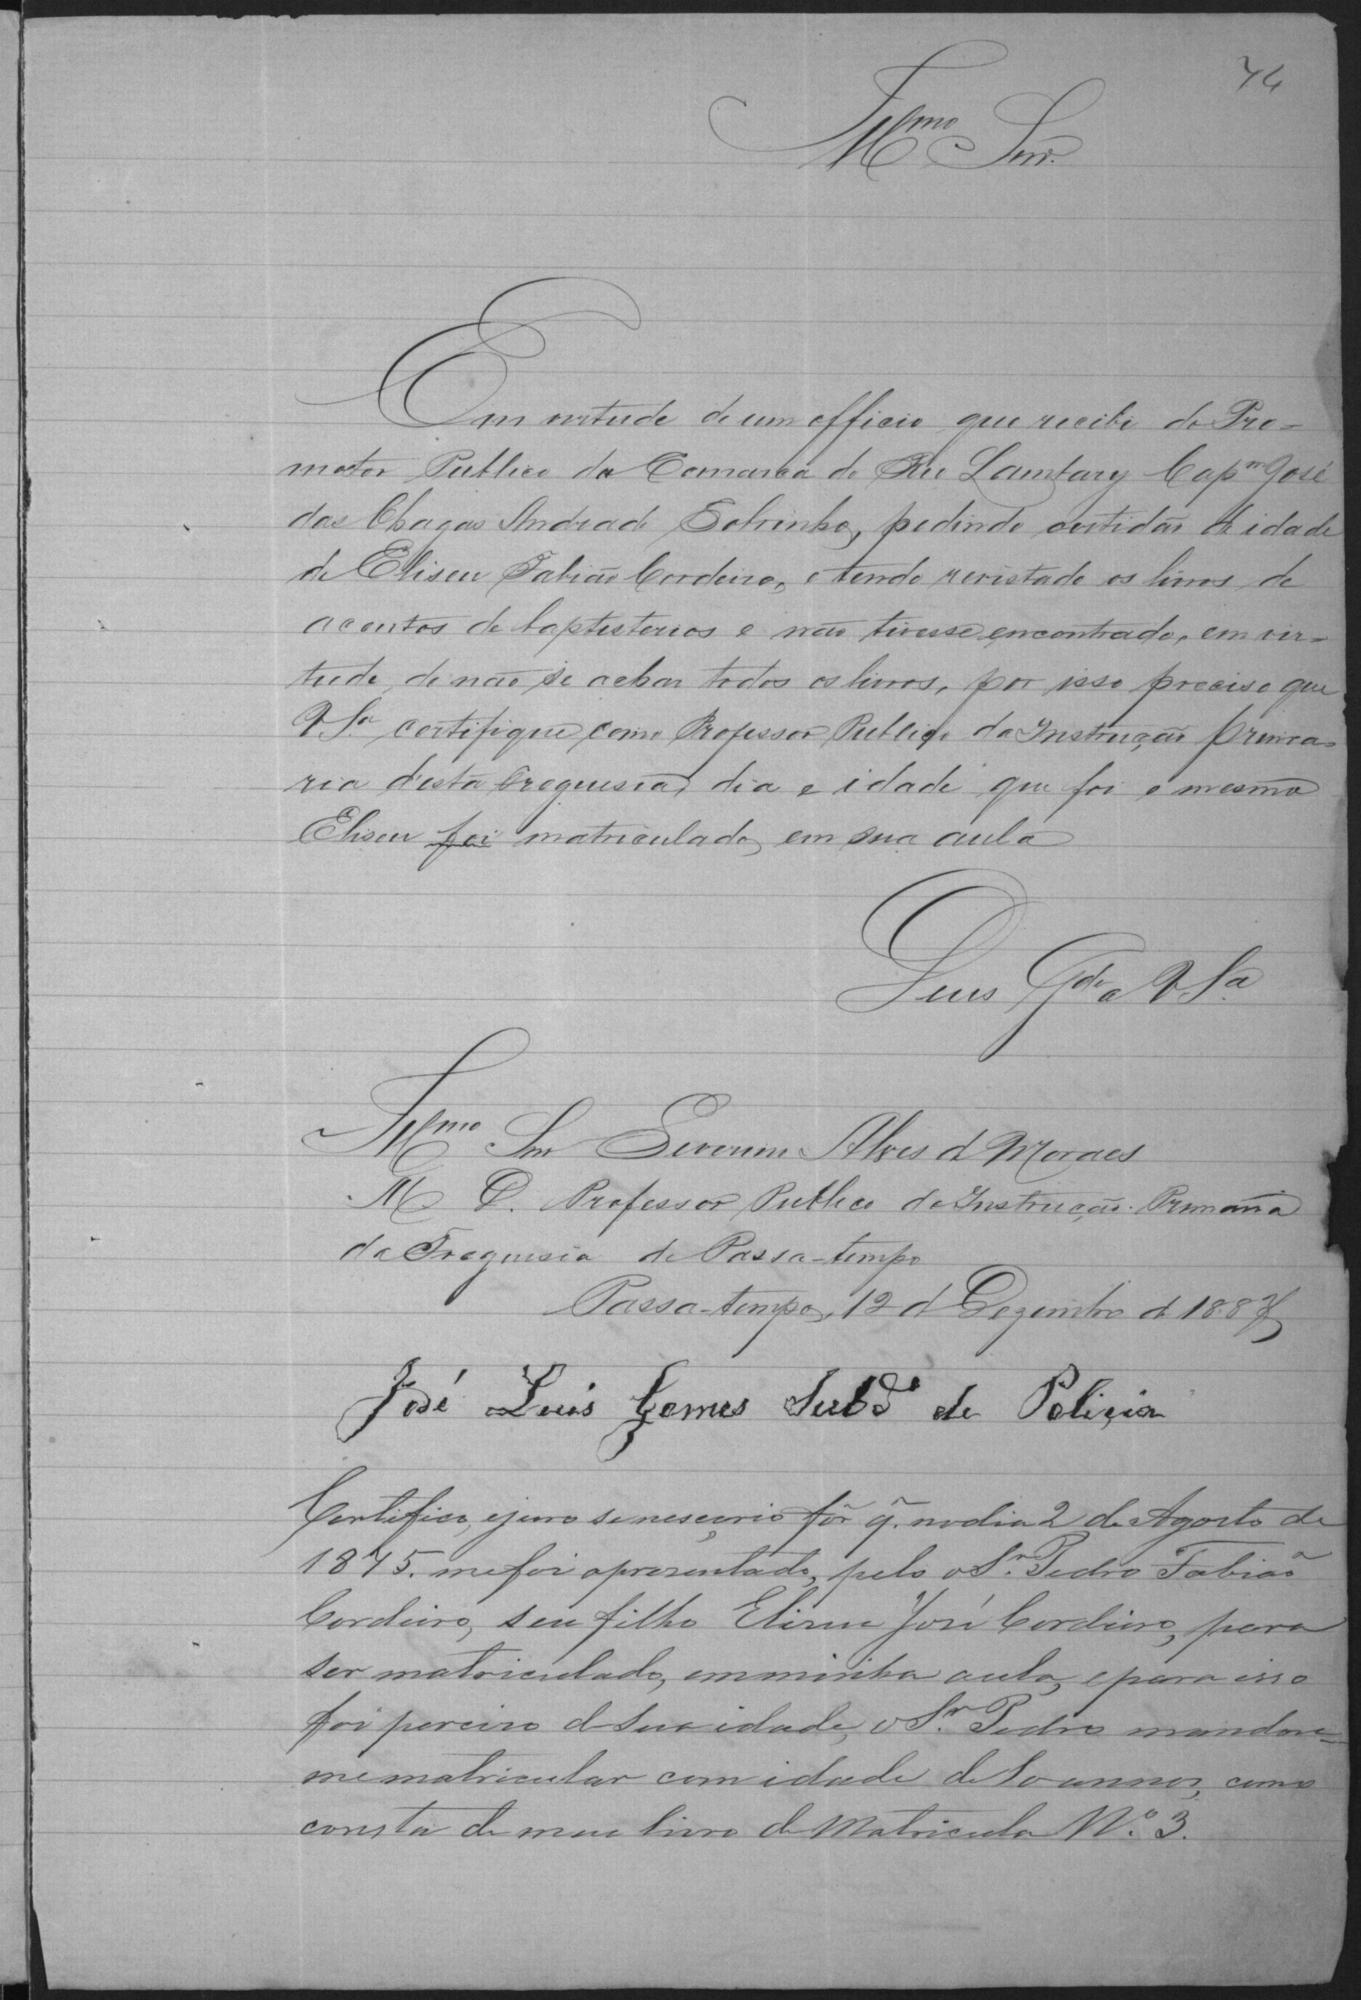 74
Illmo Snr.
Em vertude de um officio que recibi do Pro=
motor Publico da Comarca do Rio Lambary Capm José
das Chagas Andrade Sobrinho, pedindo certidão de idade
de Eliseu Fabião Cordeiro, e tendo revistado os livros de
acentos de baptisterios e não tivesse encontrado, em vir=
tude, de não se achar todos os livros, por isso preciso que
VSa certifique, como Professor Publico da Instrução prima=
ria desta Freguesia, dia e idade que foi o mesmo
Eliseu foi matriculado, em sua aula
Deus Gde a VSa
Illmo Snr Severino Alves de Moraes
M D. Professor Publico da Instrucção Primaria
da Freguesia de Passa-tempo
Passa-tempo, 12 de Dezembro de 1887
José Luis Gomes Subdo de Policia
Certifico, e juro se nesçario fôr q. no dia 2 de Agosto de
1875. me foi apresentado, pelo o Sr. Pedro Fabião
Cordeiro, seu filho Eliseu José Cordeiro, para
ser matriculado, em minha aula, e para isso
foi preciso de sua idade, o Sr. Pedro mandou=
me matricular com idade de 10 annos, como
consta de meu livro de Matricula No. 3.